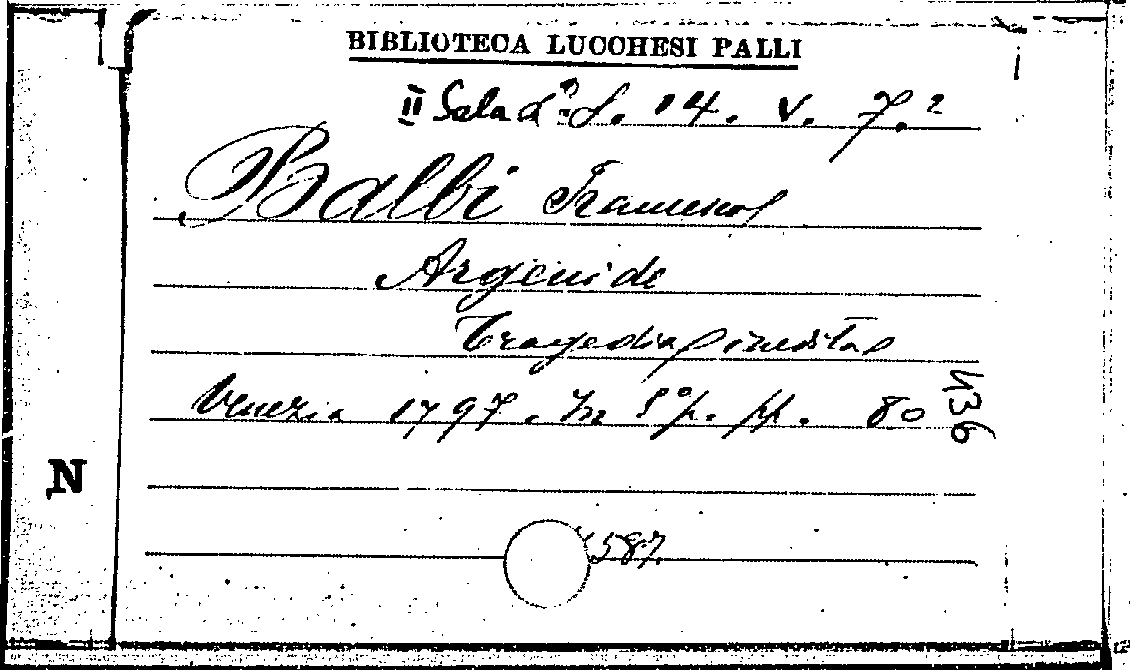 BIBLIOTECA LUCCHESI PALLI
II Sala S. 14. V. 7.2
Balbi Francesco
Argenide
Tragedia inedita
Venezia 1797. In 8º p. pp. 80
436
N
587